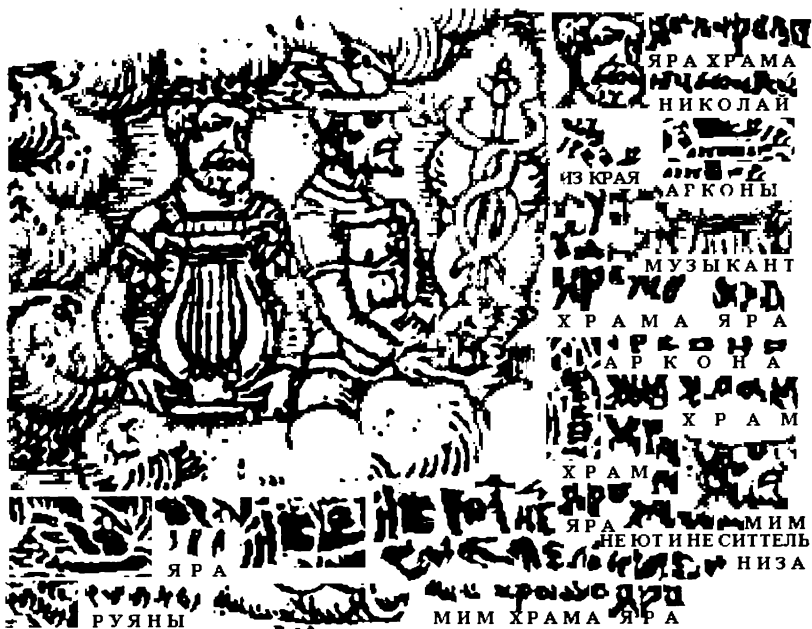 ЯРА ХРАМА
НИКОЛАЙ
ИЗ КРАЯ
АРКОНЫ
МУЗЫКАНТ
ХРАМА ЯРА
АРКОНА
ХРАМ
ХРАМ
ЯРА МИМ
НЕ ЮТ И НЕ СИТТЕЛЬ
ЯРА НИЗА
РУЯНЫ МИМ ХРАМА ЯРА